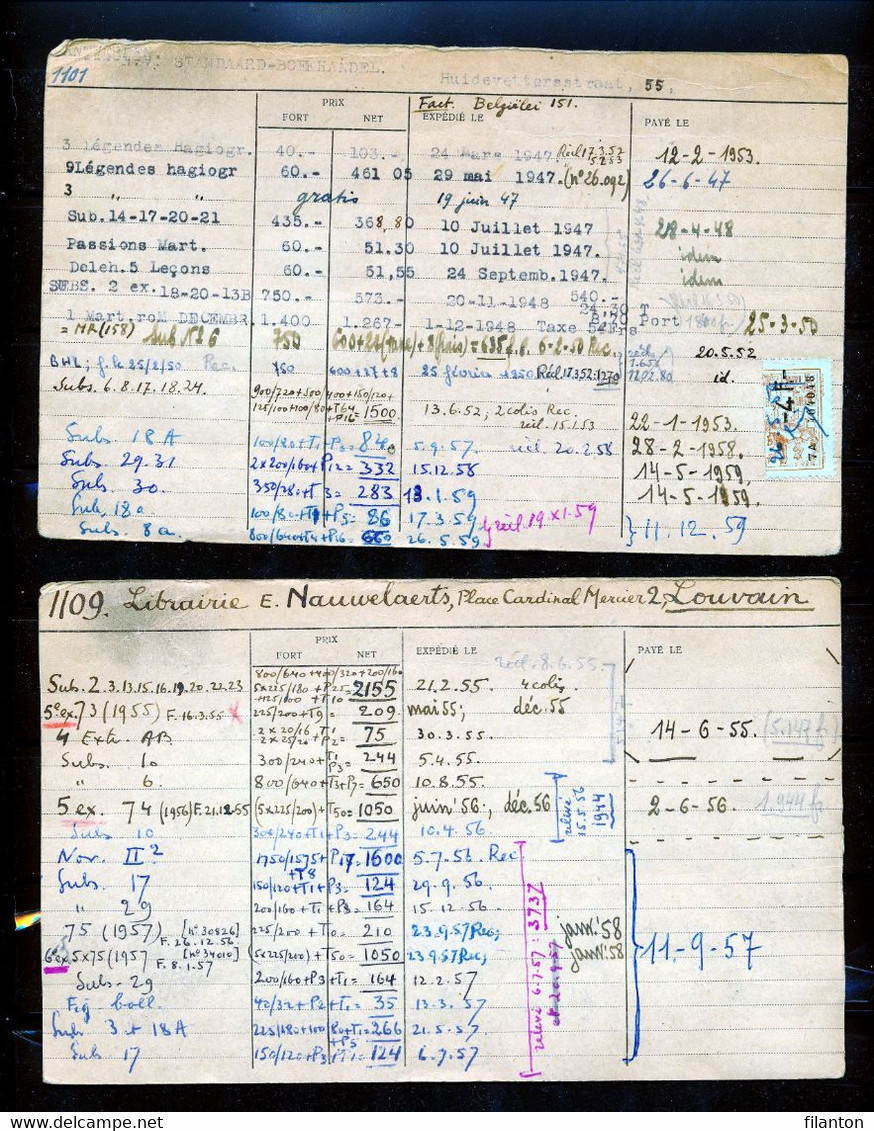 1101 STANDAARD-BOEKHANDEL. Huidevettersstraat, 55,
PRIX Fact. Belgiëlei 151.
FORT NET EXPÉDIÉ LE PAYÉ LE
3 Légendes Hagiogr. 40.- 103.- 24 Mars 1947 Récl 17.3.52 12-2-1953.
9Légendes hagiogr 60.- 461 05 29 mai 1947. (n°26.092) 26-6-47
3 " " gratis 19 juin 47
Sub.14-17-20-21 435.- 368,80 10 Juillet 1947 28-4-48
Passions Mart. 60.- 51.30 10 Juillet 1947. idem
Deleh.5 Leçons 60.- 51,55 24 Septemb.1947. idem
SUBS. 2 ex.18-20-13B 750.- 573.- 20-11-1948 540.-
1 Mart.roM DECEMBR. 1.400 1.267.- 1-12-1948 Taxe Port 25-3-50
= MR(158) Sub N° 6 750 600+27(taxe)+8(frais)=635 f.b. 6-2-50 Rec. 20.5.52
BHL; f. le 25/2/50 Rec. 750 600+27+8 25 février 1950 Récl 17.3.52:1270 id.
Subs. 6.8.17.18.24. 900/720+500/400+150/120+
125/100+100/80+T64+P16=1500 13.6.52; 2 colis Rec. récl. 15.1.53 22-1-1953.
Subs. 18A 100/80+T1+P3=84 5.9.57. récl. 20.2.58 28-2-1958.
Subs. 29.31 2x200/160+P12=332 15.12.58 14-5-1959.
Subs. 30. 350/280+T 3=283 13.1.59 14-5-1959.
Sub. 18a 100/80+T1+P5=86 17.3.59 récl. 19.XI.59 } 11.12.59
Subs. 8a. 800/640+T4+P16=660 26.5.59
1109. Librairie E. Nauwelaerts, Place Cardinal Mercier 2, Louvain
PRIX
FORT NET EXPÉDIÉ LE PAYÉ LE
récl. 8.6.55.
800/640+400/320+200/160
Sub. 2.3.13.15.16.19.20.22.23 5x225/180+P25=2155 21.2.55. 4 colis
+125/100+T10
5 ex. 73 (1955) F. 16.3.55 225/200+T9= 209 mai 55; déc. 55
4 Extr. AB. 2x20/16+T1 2x25/20+P2= 75 30.3.55 14-6-55. (5.147 fr.)
Subs. 10 300/240+T1 P3=244 5.4.55.
" 6. 800/640+T3+P7=650 10.8.55.
5 ex. 74 (1956) F. 21.12.55 (5x225/200)+T50=1050 juin '56:, déc. 56 relevé 15.5.56 1944 2-6-56. 1.944 fr.
Subs 10 300/240+T1+P3=244 10.4.56.
Nov. II² 1750/1575+P17=1600 5.7.56. Rec.
+T8
Subs. 17 150/120+T1+P3=124 29.9.56.
" 29 200/160+T1+P3=164 15.12.56
75 (1957) [n° 30826] F. 26.12.56 225/200+T0=210 23.9.57 Rec; janv. '58
6 ex 5x75 (1957 [n° 34010] F. 8.1.57 (5x225/200)+T50=1050 23.9.57 Rec; janv. '58 11-9-57
Subs. 29 200/160+P3+T1=164 12.2.57
Fig boll. 40/32+P2+T1=35 13.3.57
Subs 3 + 18A 225/180+100/80+T1=266 21.5.57
+P5
Sub 17 150/120+P3+T1=124 6.7.57
relevé 6.7.57: 3737
et 20.9.57
filanton